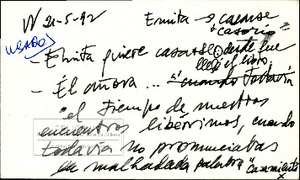 V 21-5-92 Ermita → casarse
"casorio"
USADO
- Ermita quiere casarse desde que
llegó el libro
- Él añora ... "cuando todavía
"el tiempo de nuestros
encuentros libérrimos, cuando
todavía no pronunciabas
la malhadada palabra" casamiento